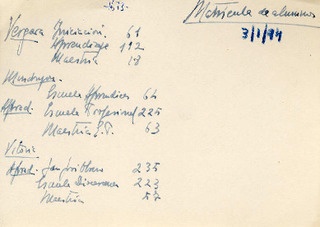 Matrícula de alumnos
3/1/74
Vergara Iniciación 61
Aprendizaje 192
Maestría 13
Mondragón
Escuela Aprendices 64
Aprend. Escuela Profesional 225
Maestría 63
Vitoria
Aprend. 235
Escuela 223
Maestría 57